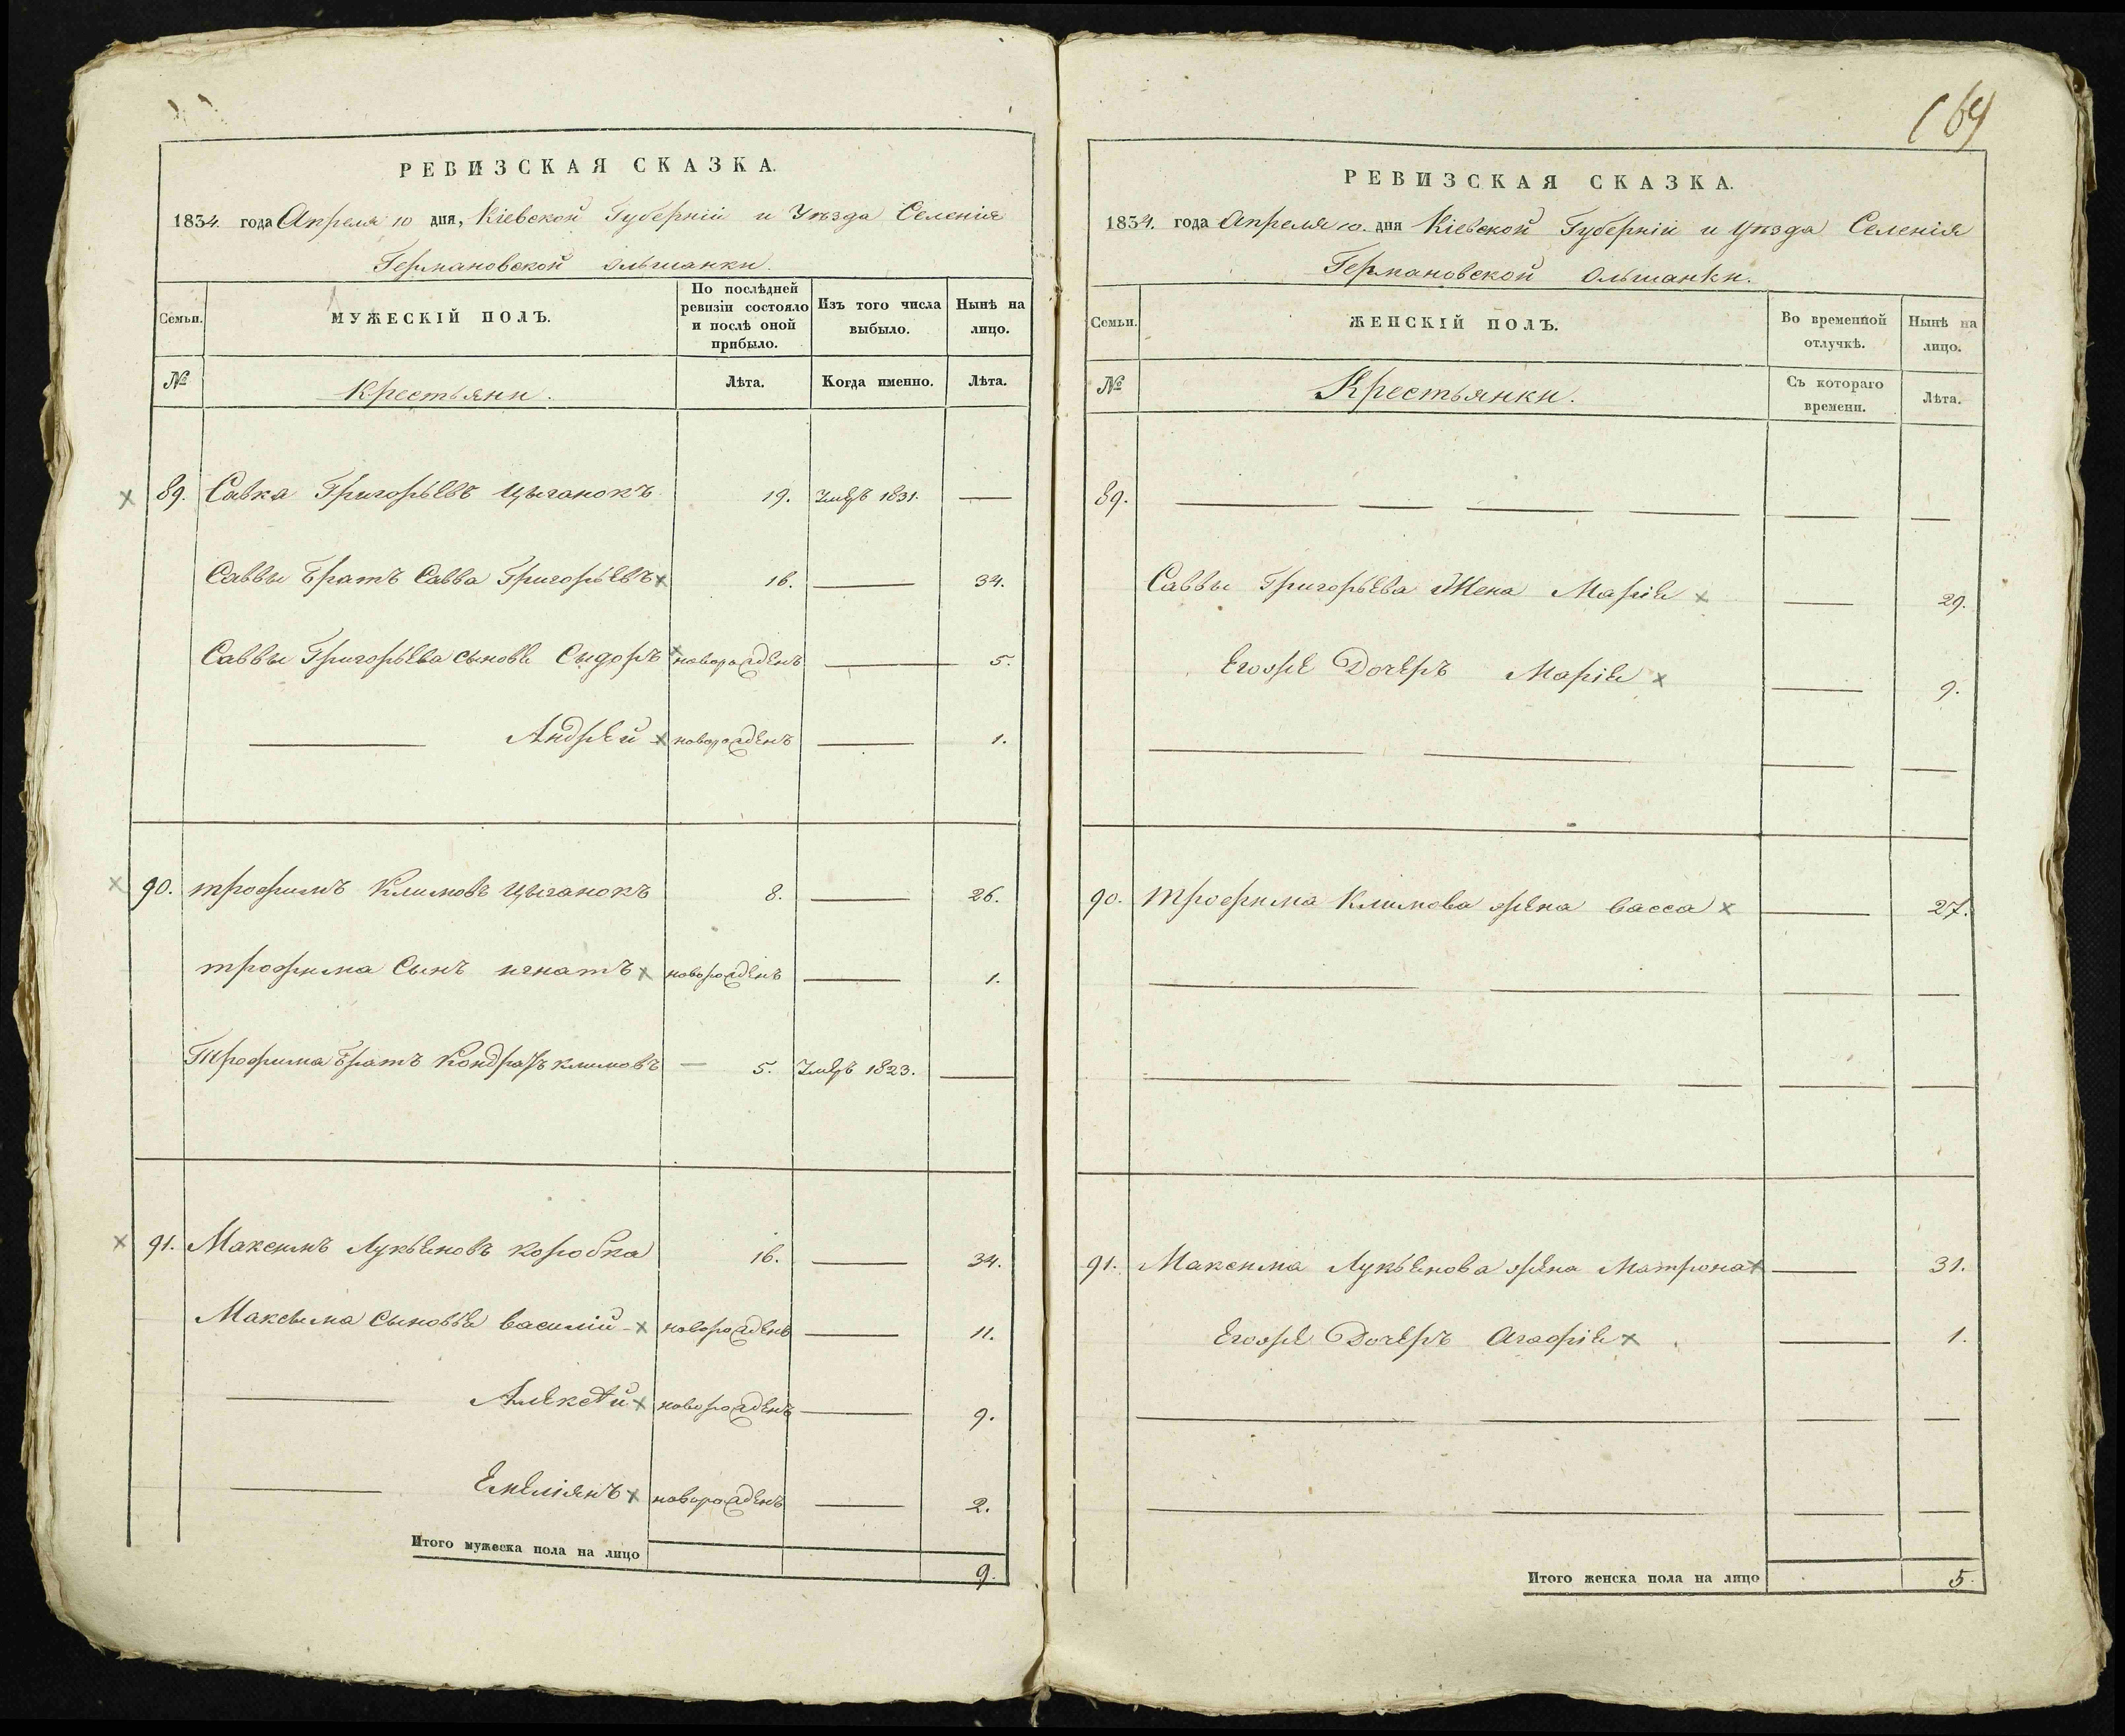 РЕВИЗСКАЯ СКАЗКА.
1834. года Апреля 10 дня, Кіевской Губерніи и Уѣзда Селенія
Германовской Ольшанки.
Семьи.
МУЖЕСКІЙ ПОЛЪ.
По послѣдней ревизіи состояло и послѣ оной прибыло.
Изъ того числа выбыло.
Нынѣ на лицо.
№
Крестьяни.
Лѣта.
Когда именно.
Лѣта.
89. Савка Григорьевъ Цыганокъ 19. Умеръ 1831. —
Саввы братъ Савва Григорьевъ x 16. — 34.
Саввы Григорьева сыновья Сыдоръ x новорожденъ — 5.
— Андрей x новорожденъ — 1.
90. трофимъ Климовъ Цыганокъ 8. — 26.
трофима Сынъ игнатъ x новорожденъ — 1.
Трофима братъ Кондратъ климовъ — 5. Умеръ 1823. —
91. Максимъ Лукьяновъ Коробка 16. — 34.
Максыма Сыновья василій x новорожденъ — 11.
— Алексѣй x новорожденъ — 9.
— Емеліянъ x новорожденъ — 2.
Итого мужеска пола на лицо 9.
169
РЕВИЗСКАЯ СКАЗКА.
1834. года Апреля 10. дня Кіевской Губерніи и Уѣзда Селенія
Германовской Ольшанки.
Семьи.
ЖЕНСКІЙ ПОЛЪ.
Во временной отлучкѣ.
Нынѣ на лицо.
№
Крестьянки.
Съ котораго времени.
Лѣта.
89. — — — — — —
Саввы Григорьева Жена Марія x — 29.
Егоже Дочеръ Марія x — 9.
— — — —
90. Трофима Климова жена васса x — 27.
— — — —
— — — — —
91. Максима Лукьянова жена Матрона x — 31.
Егоже Дочеръ Агафія x — 1.
— — — —
— — — —
Итого женска пола на лицо 5.